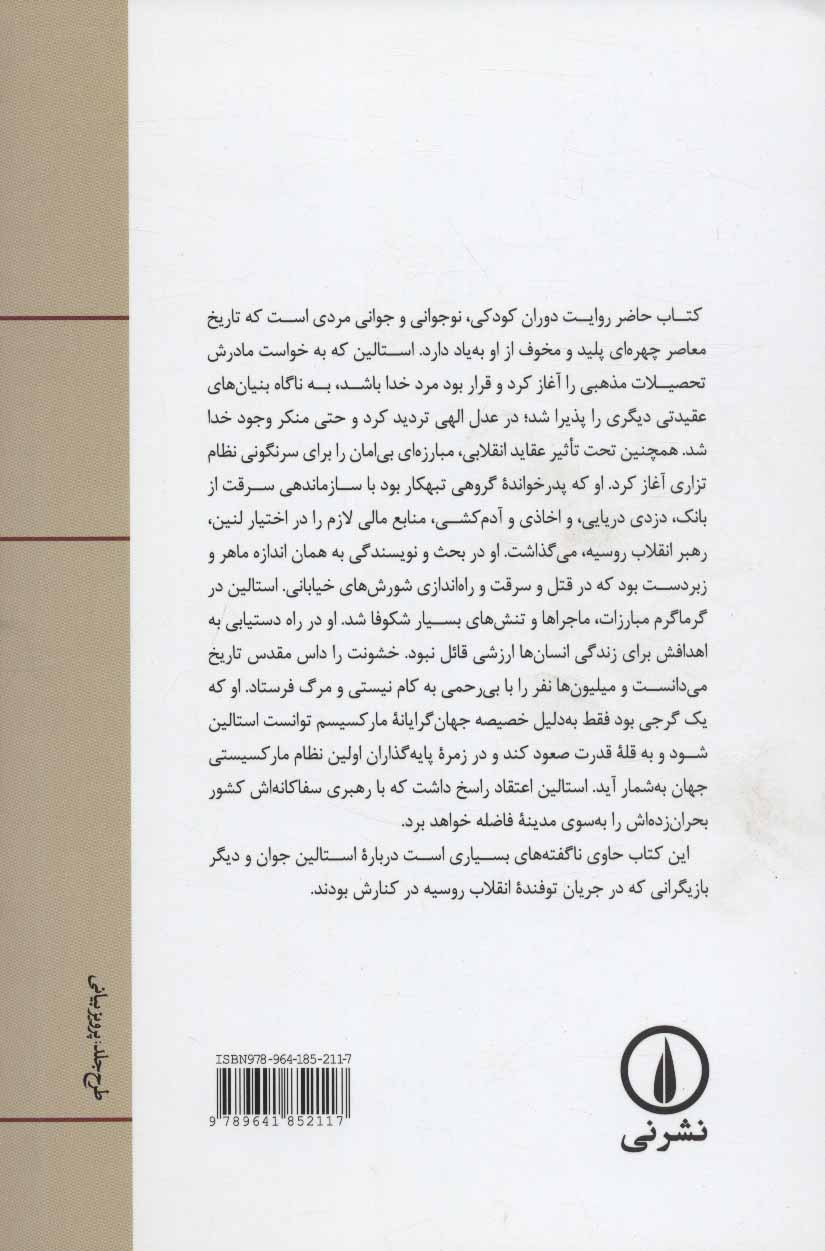 کتاب حاضر روایت دوران کودکی، نوجوانی و جوانی مردی است که تاریخ
معاصر چهره‌ای پلید و مخوف از او به‌یاد دارد. استالین که به خواست مادرش
تحصیلات مذهبی را آغاز کرد و قرار بود مرد خدا باشد، به ناگاه بنیان‌های
عقیدتی دیگری را پذیرا شد؛ در عدل الهی تردید کرد و حتی منکر وجود خدا
شد. همچنین تحت تأثیر عقاید انقلابی، مبارزه‌ای بی‌امان را برای سرنگونی نظام
تزاری آغاز کرد. او که پدرخواندۀ گروهی تبهکار بود با سازماندهی سرقت از
بانک، دزدی دریایی، و اخاذی و آدم‌کشی، منابع مالی لازم را در اختیار لنین،
رهبر انقلاب روسیه، می‌گذاشت. او در بحث و نویسندگی به همان اندازه ماهر و
زبردست بود که در قتل و سرقت و راه‌اندازی شورش‌های خیابانی. استالین در
گرماگرم مبارزات، ماجراها و تنش‌های بسیار شکوفا شد. او در راه دستیابی به
اهدافش برای زندگی انسان‌ها ارزشی قائل نبود. خشونت را داس مقدس تاریخ
می‌دانست و میلیون‌ها نفر را با بی‌رحمی به کام نیستی و مرگ فرستاد. او که
یک گرجی بود فقط به‌دلیل خصیصه جهان‌گرایانۀ مارکسیسم توانست استالین
شود و به قلۀ قدرت صعود کند و در زمرۀ پایه‌گذاران اولین نظام مارکسیستی
جهان به‌شمار آید. استالین اعتقاد راسخ داشت که با رهبری سفاکانه‌اش کشور
بحران‌زده‌اش را به‌سوی مدینۀ فاضله خواهد برد.
این کتاب حاوی ناگفته‌های بسیاری است دربارۀ استالین جوان و دیگر
بازیگرانی که در جریان توفندۀ انقلاب روسیه در کنارش بودند.
طرح جلد: پرویز بیانی
ISBN978-964-185-211-7
9 789641 852117
نشرنی